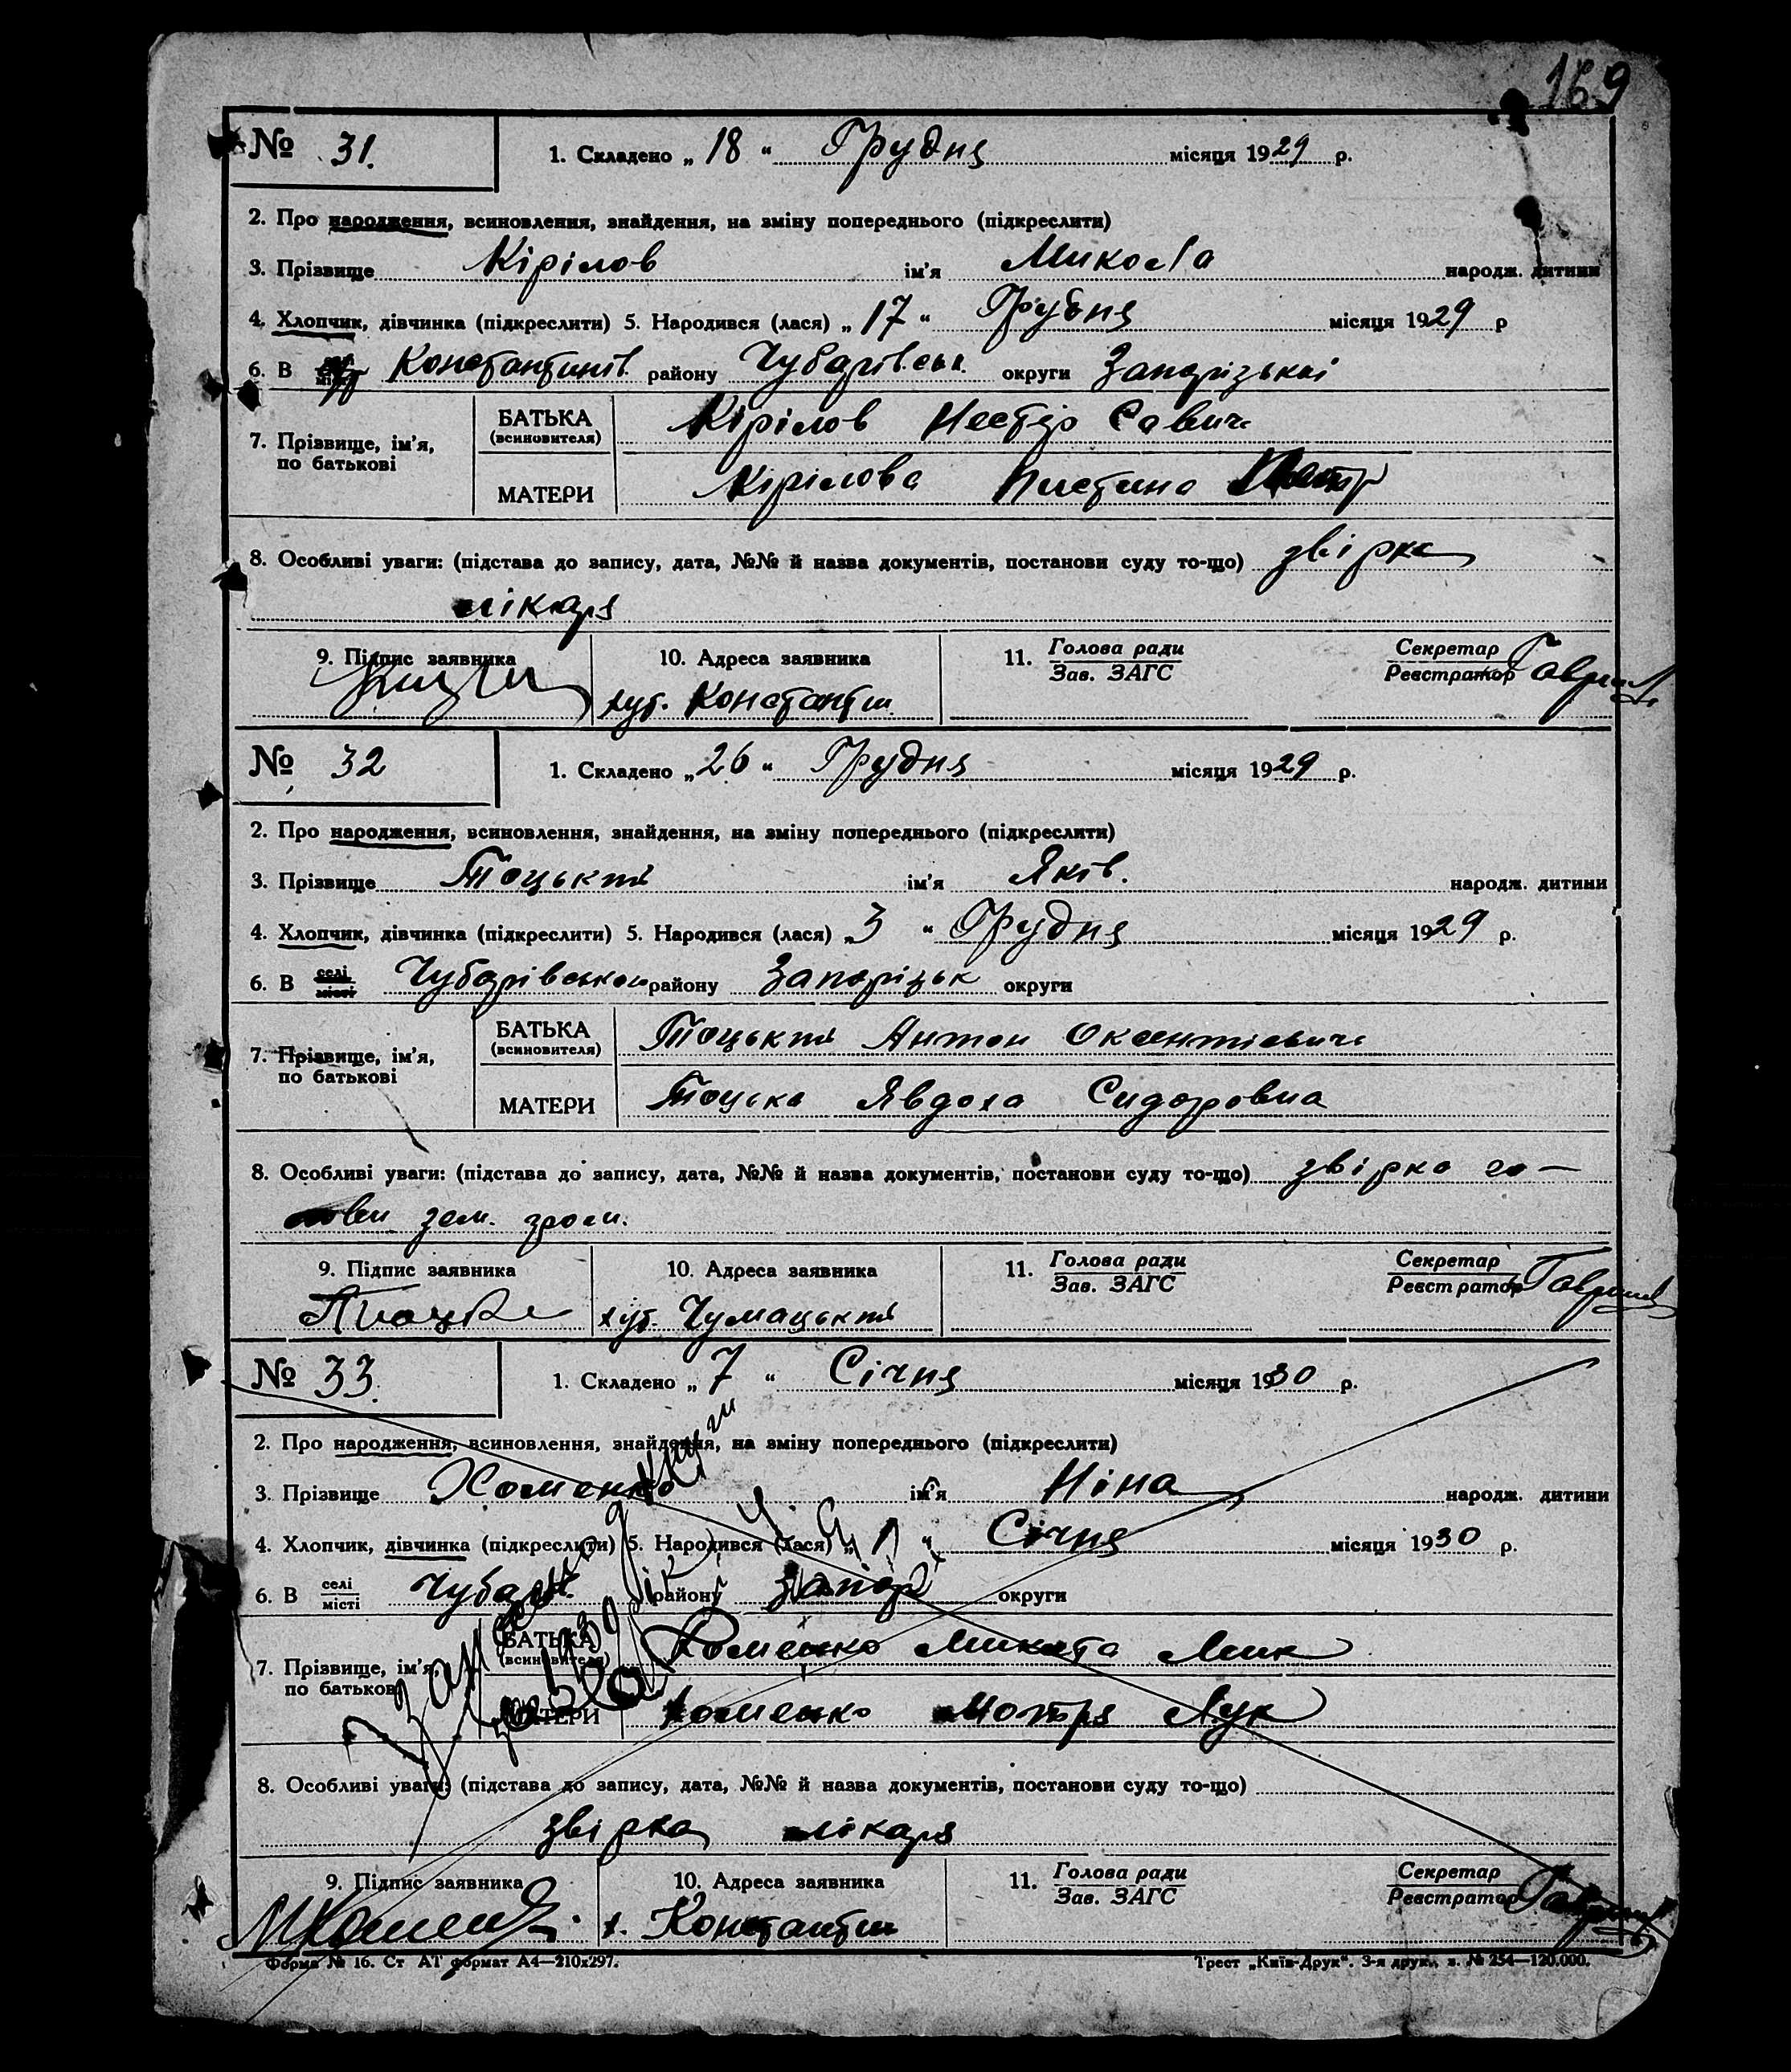 169
№ 31. 1. Складено „ 18 “ Грудня місяця 1929 р.
2. Про народження, всиновлення, знайдення, на зміну попереднього (підкреслити)
3. Прізвище Кірілов ім'я Микола народж. дитини
4. Хлопчик, дівчинка (підкреслити) 5. Народився (лася) „ 17 “ Грудня місяця 1929 р
6. В Константинів. району Чубарівськ. округи Запорізької
7. Прізвище, ім'я, по батькові
БАТЬКА (всиновителя) Кірілов Нестір Савич
МАТЕРИ Кірілова
8. Особливі уваги: (підстава до запису, дата, №№ й назва документів, постанови суду то-що) звірка
лікаря
9. Підпис заявника 10. Адреса заявника 11. Голова ради Зав. ЗАГС Секретар Реєстратор
хут. Константин.
№ 32 1. Складено „ 26 “ Грудня місяця 1929 р.
2. Про народження, всиновлення, знайдення, на зміну попереднього (підкреслити)
3. Прізвище Тоцький ім'я Яків. народж. дитини
4. Хлопчик, дівчинка (підкреслити) 5. Народився (лася) „ 3 “ Грудня місяця 1929 р.
6. В селі місті Чубарівського району Запорізьк округи
7. Прізвище, ім'я, по батькові
БАТЬКА (всиновителя) Тоцький Антон Оксентієвич
МАТЕРИ Тоцька Явдоха Сидоровна
8. Особливі уваги: (підстава до запису, дата, №№ й назва документів, постанови суду то-що) звірка го-
лови зем. гром.
9. Підпис заявника 10. Адреса заявника 11. Голова ради Зав. ЗАГС Секретар Реєстратор
хут. Чумацький
№ 33. 1. Складено „ 7 “ Січня місяця 1930 р.
2. Про народження, всиновлення, знайдення, на зміну попереднього (підкреслити)
3. Прізвище Хоменко ім'я Ніна народж. дитини
4. Хлопчик, дівчинка (підкреслити) 5. Народився (лася) „ 1 “ Січня місяця 1930 р.
6. В селі місті Чубарів. району Запор округи
7. Прізвище, ім'я, по батькові
БАТЬКА (всиновителя) Хоменко Микита Мик
МАТЕРИ Хоменко Мотря Лук
8. Особливі уваги: (підстава до запису, дата, №№ й назва документів, постанови суду то-що)
звірка лікаря
9. Підпис заявника 10. Адреса заявника 11. Голова ради Зав. ЗАГС Секретар Реєстратор
х. Константин
Форма № 16. Ст АТ формат А4—210x297. Трест „Київ-Друк“. 3-я друк., з. № 254—120.000.